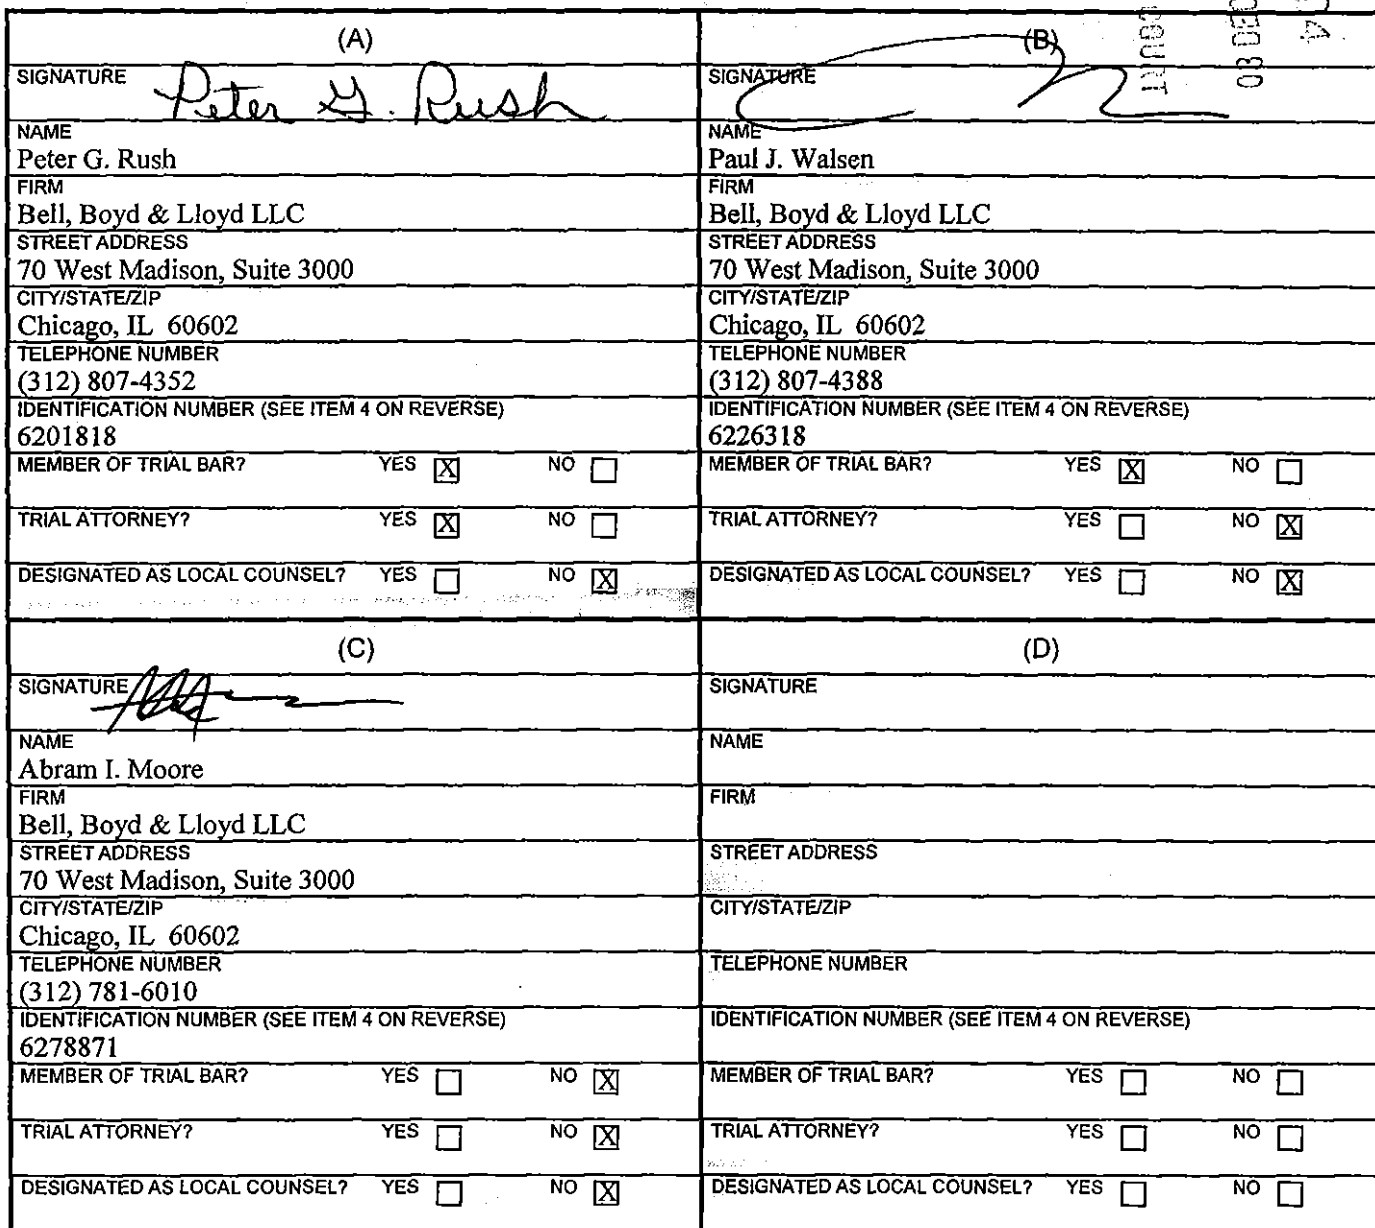 (A)
SIGNATURE Peter G. Rush
NAME
Peter G. Rush
FIRM
Bell, Boyd & Lloyd LLC
STREET ADDRESS
70 West Madison, Suite 3000
CITY/STATE/ZIP
Chicago, IL 60602
TELEPHONE NUMBER
(312) 807-4352
IDENTIFICATION NUMBER (SEE ITEM 4 ON REVERSE)
6201818
MEMBER OF TRIAL BAR? YES X NO
TRIAL ATTORNEY? YES X NO
DESIGNATED AS LOCAL COUNSEL? YES NO X
(B)
SIGNATURE
NAME
Paul J. Walsen
FIRM
Bell, Boyd & Lloyd LLC
STREET ADDRESS
70 West Madison, Suite 3000
CITY/STATE/ZIP
Chicago, IL 60602
TELEPHONE NUMBER
(312) 807-4388
IDENTIFICATION NUMBER (SEE ITEM 4 ON REVERSE)
6226318
MEMBER OF TRIAL BAR? YES X NO
TRIAL ATTORNEY? YES NO X
DESIGNATED AS LOCAL COUNSEL? YES NO X
COURT
(C)
SIGNATURE
NAME
Abram I. Moore
FIRM
Bell, Boyd & Lloyd LLC
STREET ADDRESS
70 West Madison, Suite 3000
CITY/STATE/ZIP
Chicago, IL 60602
TELEPHONE NUMBER
(312) 781-6010
IDENTIFICATION NUMBER (SEE ITEM 4 ON REVERSE)
6278871
MEMBER OF TRIAL BAR? YES NO X
TRIAL ATTORNEY? YES NO X
DESIGNATED AS LOCAL COUNSEL? YES NO X
(D)
SIGNATURE
NAME
FIRM
STREET ADDRESS
CITY/STATE/ZIP
TELEPHONE NUMBER
IDENTIFICATION NUMBER (SEE ITEM 4 ON REVERSE)
MEMBER OF TRIAL BAR? YES NO
TRIAL ATTORNEY? YES NO
DESIGNATED AS LOCAL COUNSEL? YES NO